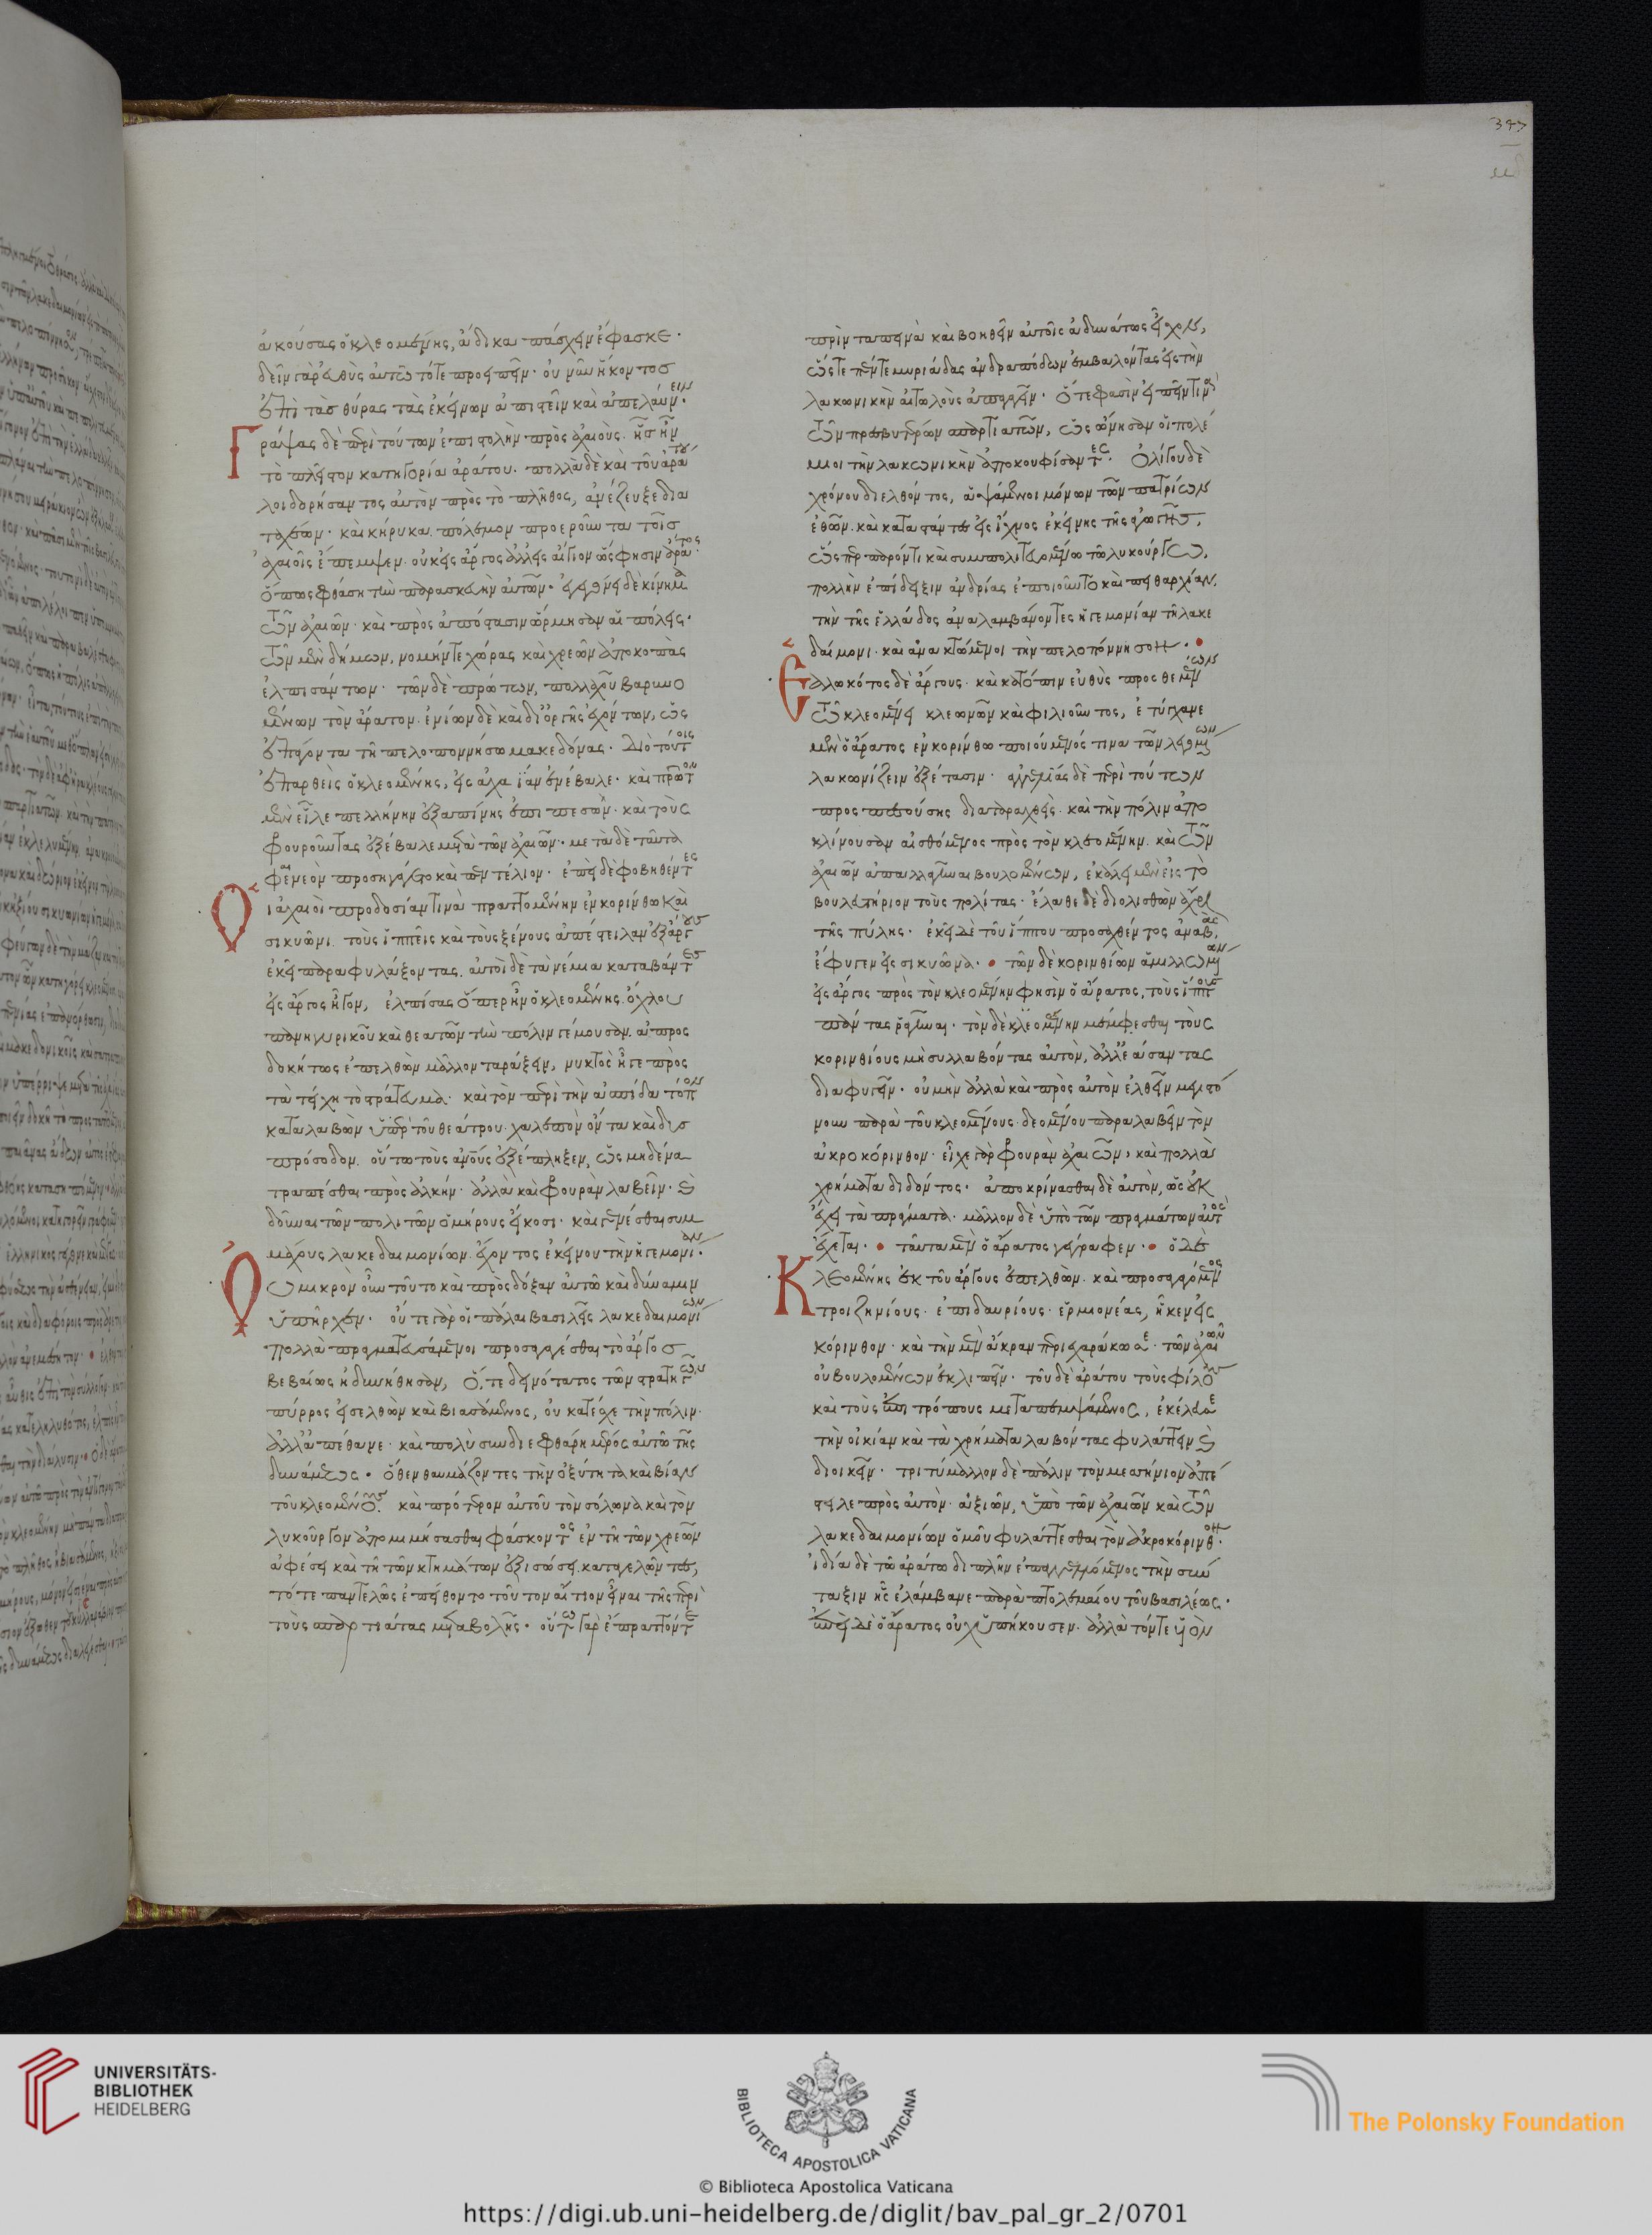 ἀκούσας ὁ κλεομένης, ἄδικα πάσχειν ἔφασκε·
δεῖν γὰρ εὐθὺς αὐτῶ τότε προειπεῖν· οὐ νῦν ἥκοντος
ἐπὶ τὰς θύρας τὰς ἐκείνων ἀπιστεῖν καὶ ἀπελαύνειν·
Γράψας δὲ περὶ τούτων ἐπιστολὴν πρὸς ἀχαιοὺς· ἧς ἦν
τὸ πλεῖστον κατηγορία ἀράτου· πολλὰ δὲ καὶ τοῦ ἀράτου
λοιδορήσαντος αὐτὸν πρὸς τὸ πλῆθος, ἀνέζευξε δια
ταχέων· καὶ κήρυκα πόλεμον προεροῦντα τοῖς
ἀχαιοῖς ἔπεμψεν· οὐκ εἰς ἄργος ἀλλ' εἰς αἴγιον ὥς φησιν ἄρατος·
ὅπως φθάση τὴν παρασκευὴν αὐτῶν· ἐγεγόνει δὲ κίνημα
τῶν ἀχαιῶν· καὶ πρὸς ἀπόστασιν ὥρμησαν αἱ πόλεις·
τῶν μὲν δήμων, νομήν τε χώρας καὶ χρεῶν ἀποκοπὰς
ἐλπισάντων· τῶν δὲ πρώτων, πολλαχοῦ βαρυνο
μένων τὸν ἄρατον· ἐνίων δὲ καὶ δι' ὀργῆς ἐχόντων, ὡς
ἐπάγοντα τῆ πελοποννήσω μακεδόνας· Διὸ τούτοις
ἐπαρθεὶς ὁ κλεομένης, εἰς ἀχαΐαν ἐνέβαλε· καὶ πρῶτον
μὲν εἷλε πελλήνην ἐξαπίνης ἐπιπεσὼν· καὶ τοὺς
φρουροῦντας ἐξέβαλε μετὰ τῶν ἀχαιῶν· μετὰ δὲ ταῦτα
φενεὸν προσηγάγετο καὶ πεντέλιον· ἐπεὶ δὲ φοβηθέντες
Οἱ ἀχαιοὶ προδοσίαν τινὰ πραττομένην ἐν κορίνθω καὶ
σικυῶνι· τοὺς ἱππεῖς καὶ τοὺς ξένους ἀπέστειλαν ἐξ ἄργους
ἐκεῖ παραφυλάξοντας· αὐτοὶ δὲ τὰ νέμεια καταβάντες
εἰς ἄργος ἦγον, ἐλπίσας ὅπερ ἦν ὁ κλεομένης· ὄχλου
πανηγυρικοῦ καὶ θεατῶν τὴν πόλιν γέμουσαν· ἀπροσ
δοκήτως ἐπελθὼν μᾶλλον ταράξειν, νυκτὸς ἦγε πρὸς
τὰ τείχη τὸ στράτευμα· καὶ τὸν περὶ τὴν ἀσπίδα τόπον
καταλαβὼν ὑπὲρ τοῦ θεάτρου· χαλεπὸν ὄντα καὶ δυσ
πρόσοδον· οὕτω τοὺς ἀνοὺς ἐξέπληξεν, ὡς μηδένα
τραπέσθαι πρὸς ἀλκήν· ἀλλὰ καὶ φρουρὰν λαβεῖν· καὶ
δοῦναι τῶν πολιτῶν ὁμήρους εἴκοσι· καὶ γενέσθαι συμ
μάχους λακεδαιμονίων· ἔχοντος ἐκείνου τὴν ἡγεμονίαν·
Οὐ μικρὸν οὖν τοῦτο καὶ πρὸς δόξαν αὐτῶ καὶ δύναμιν
ὑπῆρχεν· οὔτε γὰρ οἱ πάλαι βασιλεῖς λακεδαιμονίων
πολλὰ πραγματευσάμενοι προσαγαγέσθαι τὸ ἄργος
βεβαίως ἠδυνήθησαν, ὅ, τε δεινότατος τῶν στρατηγῶν
πύρρος εἰσελθὼν καὶ βιασάμενος, οὐ κατέσχε τὴν πόλιν·
ἀλλ' ἀπέθανε· καὶ πολὺ συνδιεφθάρη μέρος αὐτῶ τῆς
δυνάμεως· ὅθεν θαυμάζοντες τὴν ὀξύτητα καὶ βίαν
τοῦ κλεομένους· καὶ πρότερον αὐτοῦ τὸν σόλωνα καὶ τὸν
λυκοῦργον ἀπομιμήσασθαι φάσκοντος ἐν τῆ τῶν χρεῶν
ἀφέσει καὶ τῆ τῶν κτημάτων ἐξισώσει καταγελῶντες,
τότε παντελῶς ἐπείθοντο τοῦτον αἴτιον εἶναι τῆς περὶ
τοὺς σπαρτιάτας μεταβολῆς· οὕτω γὰρ ἔπραττόν τε
πρὶν ταπεινὰ καὶ βοηθεῖν αὐτοῖς ἀδυνάτως εἶχον,
ὥστε πέντε μυριάδας ἀνδραπόδων ἐμβαλόντας εἰς τὴν
λακωνικὴν αἰτωλοὺς ἀπαγαγεῖν· Ὅτε φασὶν εἰπεῖν τινα
τῶν πρεσβυτέρων σπαρτιατῶν, ὡς ὤνησαν οἱ πολέ
μιοι τὴν λακωνικὴν ἀποκουφίσαντες· Ὀλίγου δὲ
χρόνου διελθόντος, ἁψάμενοι μόνων τῶν πατρίων
ἐθῶν· καὶ καταστάντες εἰς ἴχνος ἐκείνης τῆς ἀγωγῆς,
ὥσπερ παρόντι καὶ συμπολιτευομένω τῶ λυκούργω,
πολλὴν ἐπίδειξιν ἀνδρίας ἐποιοῦντο καὶ πειθαρχίαν,
τὴν τῆς ἑλλάδος ἀναλαμβάνοντες ἡγεμονίαν τῆ λακε
δαίμονι· καὶ ἀνακτώμενοι τὴν πελοπόννησον·
Ἑαλωκότος δὲ ἄργους· καὶ κατόπιν εὐθὺς προσθεμένων
τῶ κλεομένει κλεωνῶν καὶ φλιοῦντος, ἐτύγχανε
μὲν ὁ ἄρατος ἐν κορίνθω ποιούμενός τινα τῶν λεγομένων
λακωνίζειν ἐξέτασιν· ἀγγελίας δὲ περὶ τούτων
προσπεσούσης διαταραχθεὶς· καὶ τὴν πόλιν ἀπο
κλίνουσαν αἰσθόμενος πρὸς τὸν κλεομένην· καὶ τῶν
ἀχαιῶν ἀπαλλαγῆναι βουλομένων, ἐκάλει μὲν εἰς τὸ
βουλευτήριον τοὺς πολίτας· ἔλαθε δὲ διολισθὼν ἄχρι
τῆς πύλης· ἐκεῖ δὲ τοῦ ἵππου προσαχθέντος ἀναβὰς,
ἔφυγεν εἰς σικυῶνα· τῶν δὲ κορινθίων ἁμιλλωμένων
εἰς ἄργος πρὸς τὸν κλεομένην φησὶν ὁ ἄρατος, τοὺς ἵππους
πάντας ῥαγῆναι· τὸν δὲ κλεομένην μέμφεσθαι τοὺς
κορινθίους μὴ συλλαβόντας αὐτὸν, ἀλλ' ἐάσαντας
διαφυγεῖν· οὐ μὴν ἀλλὰ καὶ πρὸς αὐτὸν ἐλθεῖν μεγιστό
νουν παρὰ τοῦ κλεομένους· δεομένου παραλαβεῖν τὸν
ἀκροκόρινθον· εἶχε γὰρ φρουρὰν ἀχαιῶν· καὶ πολλὰ
χρήματα διδόντος· ἀποκρίνασθαι δὲ αὐτὸν, ὡς οὐκ
ἔχει τὰ πράγματα· μᾶλλον δὲ ὑπὸ τῶν πραγμάτων αὐτὸς
ἔχεται· ταῦτα μὲν ὁ ἄρατος γέγραφεν· ὁ δὲ
Κλεομένης ἐκ τοῦ ἄργους ἐπελθὼν· καὶ προσαγόμενος
τροιζηνίους· ἐπιδαυρίους· ἑρμιονέας, ἧκεν εἰς
κόρινθον· καὶ τὴν μὲν ἄκραν περιεχαράκωσε· τῶν ἀχαιῶν
οὐ βουλομένων ἐκλιπεῖν· τοῦ δὲ ἀράτου τοὺς φίλους
καὶ τοὺς ἐπιτρόπους μεταπεμψάμενος, ἐκέλευσε
τὴν οἰκίαν καὶ τὰ χρήματα λαβόντας φυλάττειν καὶ
διοικεῖν· τριτύμαλλον δὲ πάλιν τὸν μεσήνιον ἀπέ
στειλε πρὸς αὐτὸν· ἀξιῶν, ὑπὸ τῶν ἀχαιῶν καὶ τῶν
λακεδαιμονίων ὁμοῦ φυλάττεσθαι τὸν ἀκροκόρινθον·
ἰδία δὲ τῶ ἀράτω διπλῆν ἐπαγγελλόμενος τὴν σύν
ταξιν ἧς ἐλάμβανε παρὰ πτολεμαίου τοῦ βασιλέως·
ἐπεὶ δὲ ὁ ἄρατος οὐχ ὑπήκουσεν· ἀλλὰ τόν τε υἱὸν
UNIVERSITÄTS-
BIBLIOTHEK
HEIDELBERG
BIBLIOTECA APOSTOLICA VATICANA
© Biblioteca Apostolica Vaticana
The Polonsky Foundation
https://digi.ub.uni-heidelberg.de/diglit/bav_pal_gr_2/0701